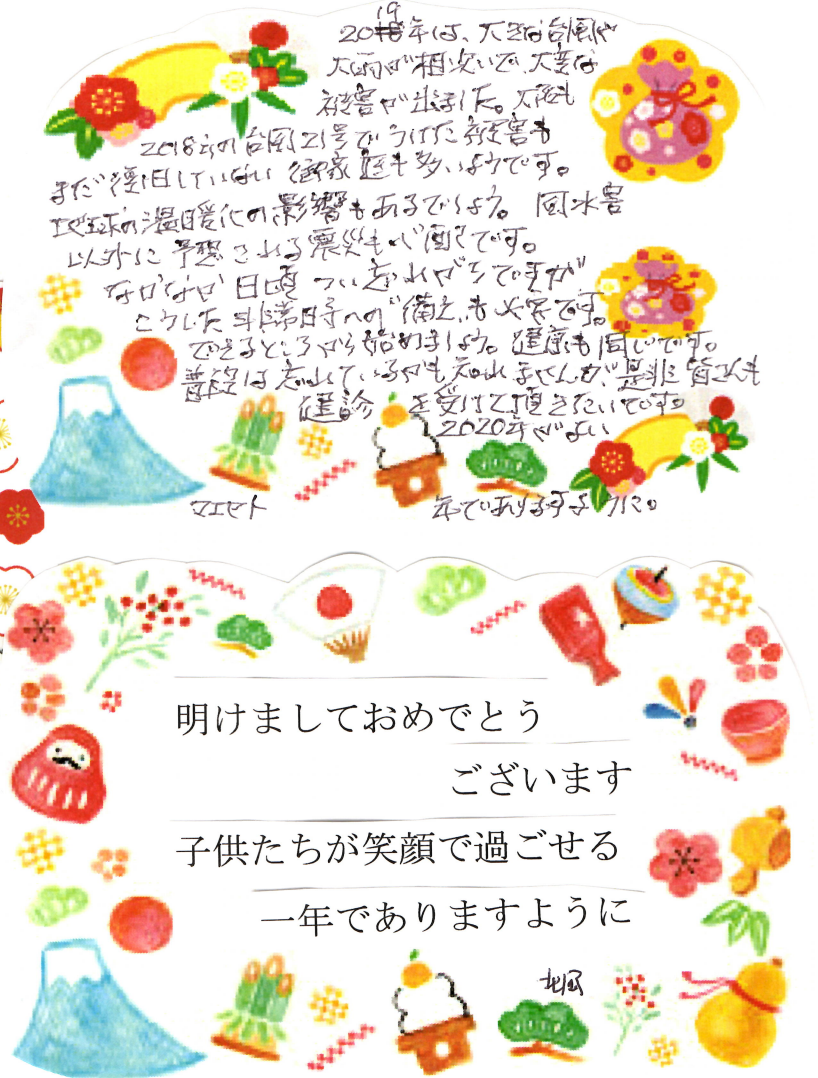 2019年は、大きな台風や
大雨が相次いで、大変な
被害が出ました。大阪も
2018年の台風21号でうけた被害も
まだ復旧していない御家庭も多いようです。
地球の温暖化の影響もあるでしょう。風水害
以外に予想される震災も心配です。
なかなか日頃つい忘れがちですが
こうした非常時への備えも大事です。
できるところから始めましょう。健康も同じです。
普段は忘れているかも知れませんが、是非皆さんも
健診を受けて頂きたいです。
2020年がよい
年でありますように。
マエセト
明けましておめでとう
ございます
子供たちが笑顔で過ごせる
一年でありますように